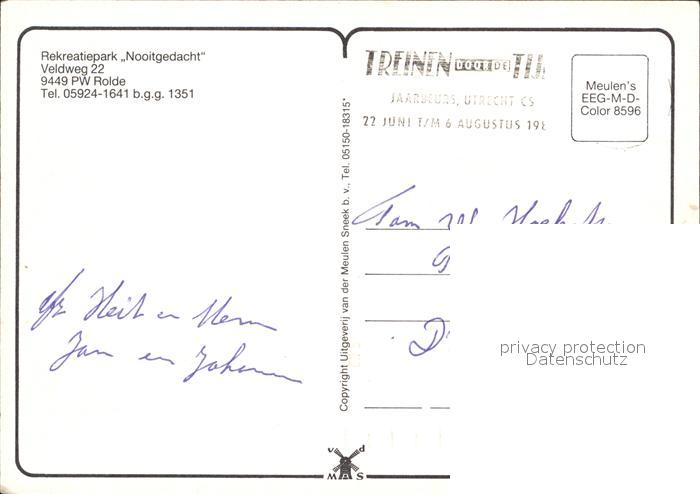 Rekreatiepark „Nooitgedacht"
Veldweg 22
9449 PW Rolde
Tel. 05924-1641 b.g.g. 1351
TREINEN DOOR DE TIJ
JAARBEURS, UTRECHT CS
22 JUNI T/M 6 AUGUSTUS 198
Meulen's
EEG-M-D-
Color 8596
Copyright Uitgeverij van der Meulen Sneek b. v., Tel. 05150-18315*
Fam
Heit en Mem
Jan en
D
privacy protection
Datenschutz
v d
M A S